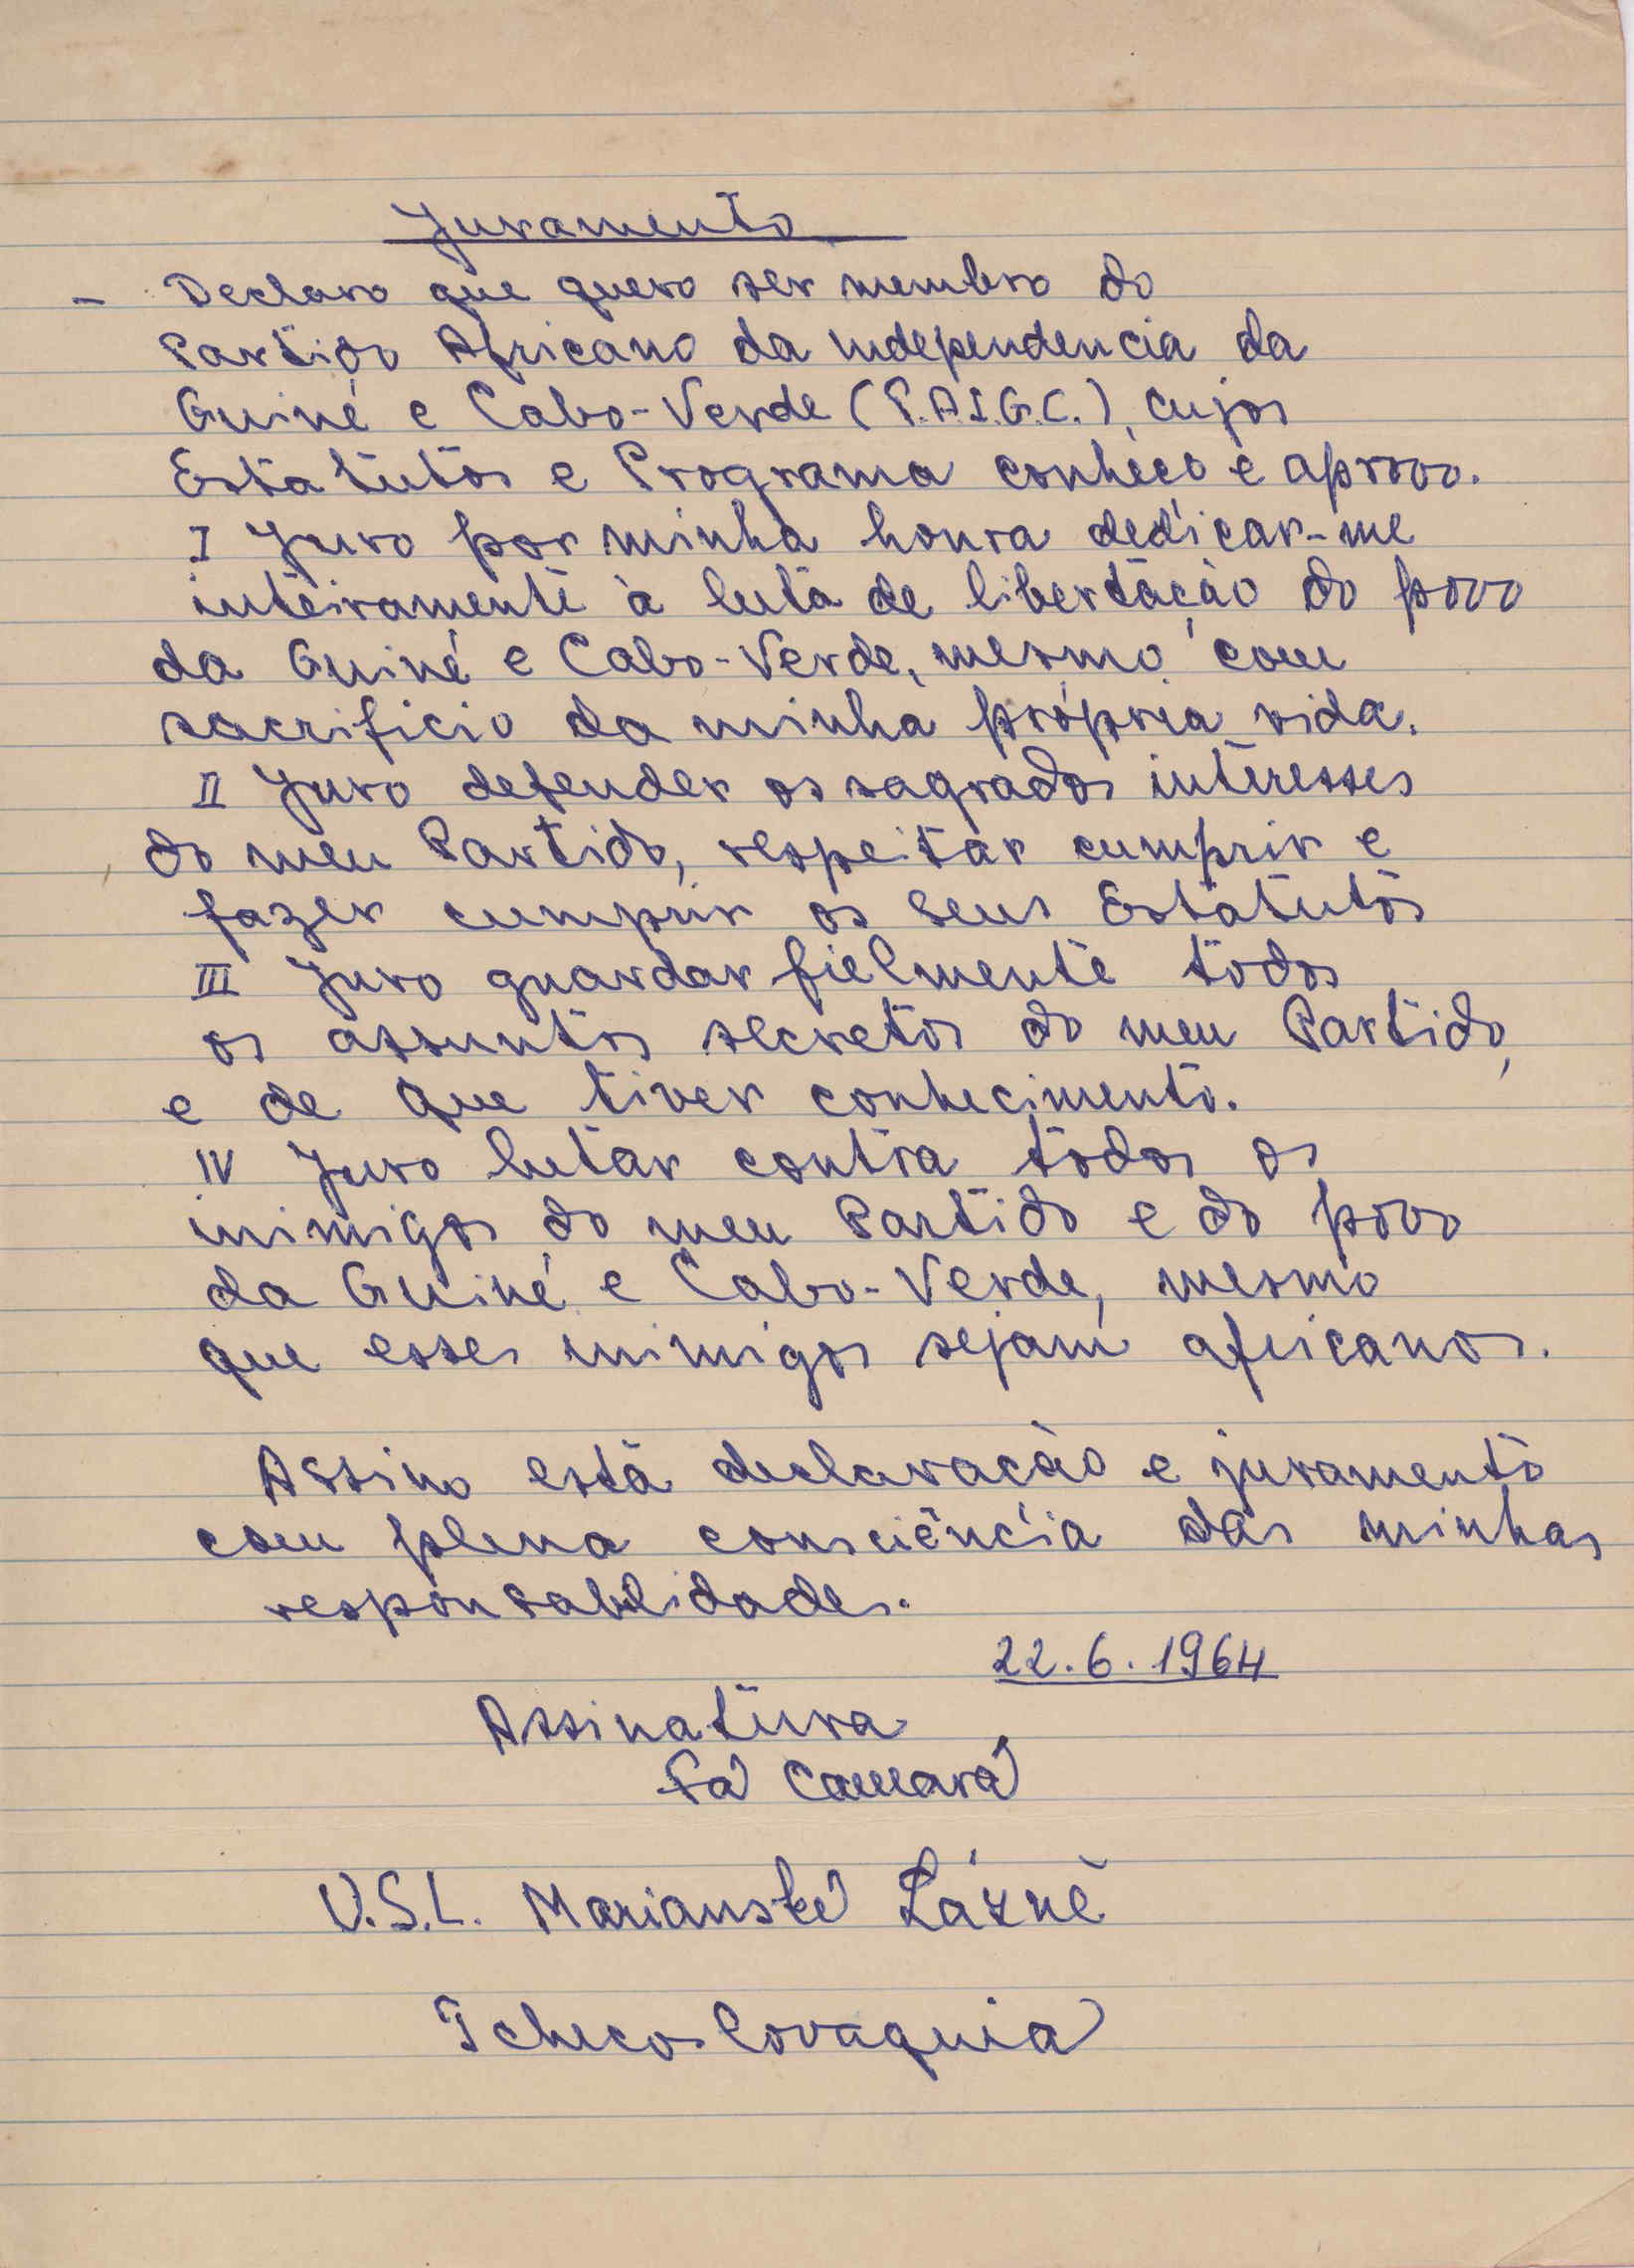 Juramento
- Declaro que quero ser membro do
Partido Africano da independencia da
Guiné e Cabo-Verde (P.A.I.G.C.), cujos
Estatutos e Programa conheço e aprovo.
I Juro por minha honra dedicar-me
inteiramente à luta de libertação do povo
da Guiné e Cabo-Verde, mesmo com
sacrificio da minha própria vida.
II Juro defender os sagrados interesses
do meu Partido, respeitar cumprir e
fazer cumprir os seus Estatutos
III Juro guardar fielmente todos
os assuntos secretos do meu Partido,
e de que tiver conhecimento.
IV Juro lutar contra todos os
inimigos do meu Partido e do povo
da Guiné e Cabo-Verde, mesmo
que esses inimigos sejam africanos.
Assino esta declaração e juramento
com plena consciência das minhas
responsabilidades.
22.6.1964
Assinatura
Fá Camará
U.S.L. Marianské Lázně
Tchecoslovaquia